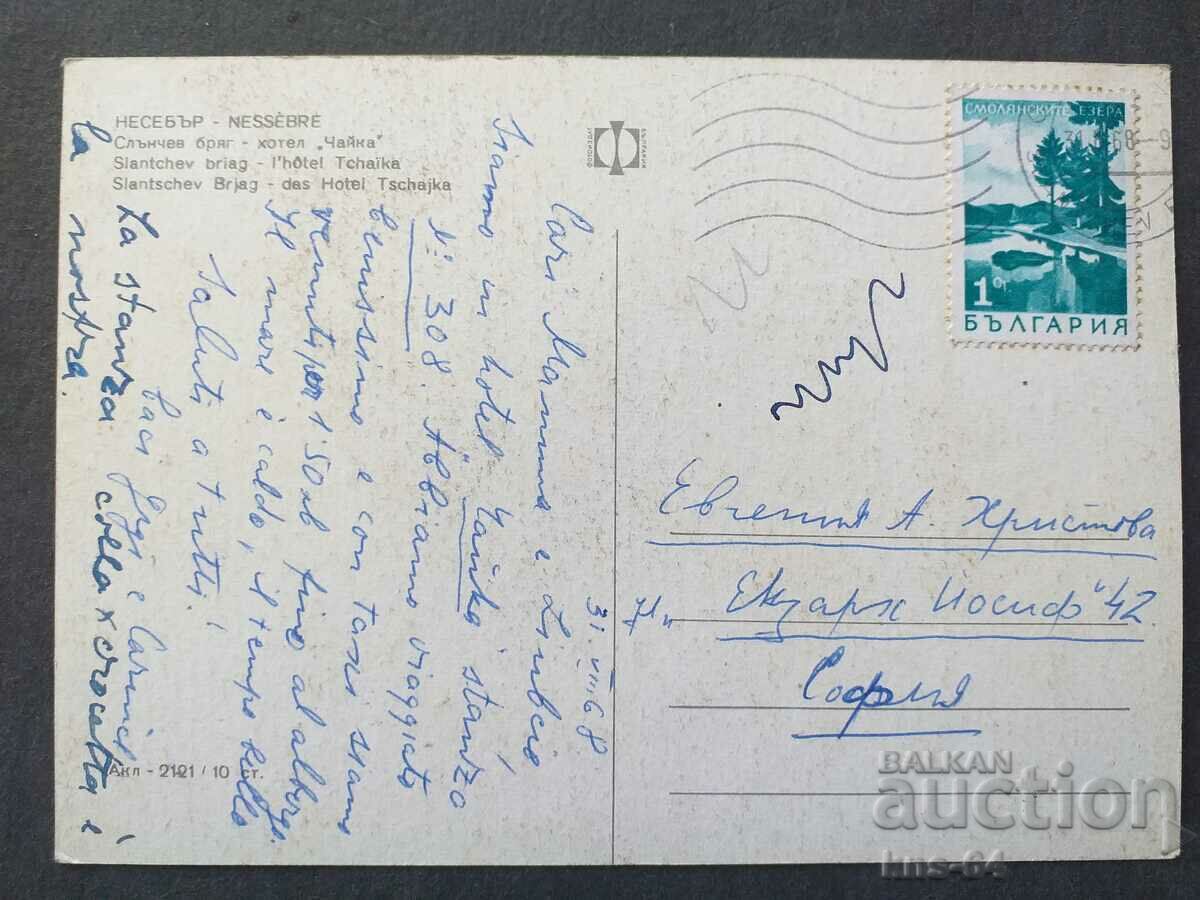 НЕСЕБЪР - NESSÈBRE
Слънчев бряг - хотел „Чайка“
Slantchev briag - l'hôtel Tchaïka
Slantschev Brjag - das Hotel Tschajka
БЪЛГАРСКИ
ФОТОИЗДАТ
СМОЛЯНСКИТЕ ЕЗЕРА
31 68-9
1 СТ
БЪЛГАРИЯ
Cari Mamma e
Siamo in hotel "Чайка" stanza
N: 308. Abbiamo viaggiato
benissimo e con taxi siamo
venuti per 1.50 lb fino al albergo.
Il mare è caldo, il tempo bello
Saluti a tutti!
baci e
La stanza colla x crocetta è
la nostra.
31.VIII 68
Евгения А. Христова
Ул." Екзарх Йосиф" 42
София
Акл - 2121 / 10 ст.
BALKAN
auction
kns-64